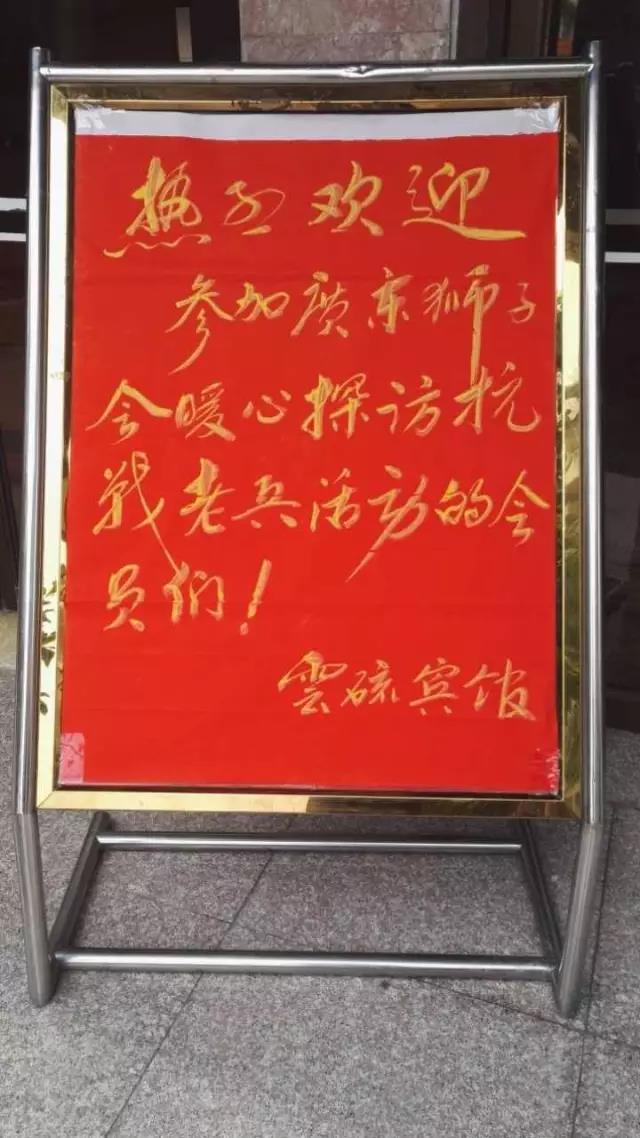 热烈欢迎
参加广东狮子
会暖心探访抗
战老兵活动的会
员们！
雲硫宾馆